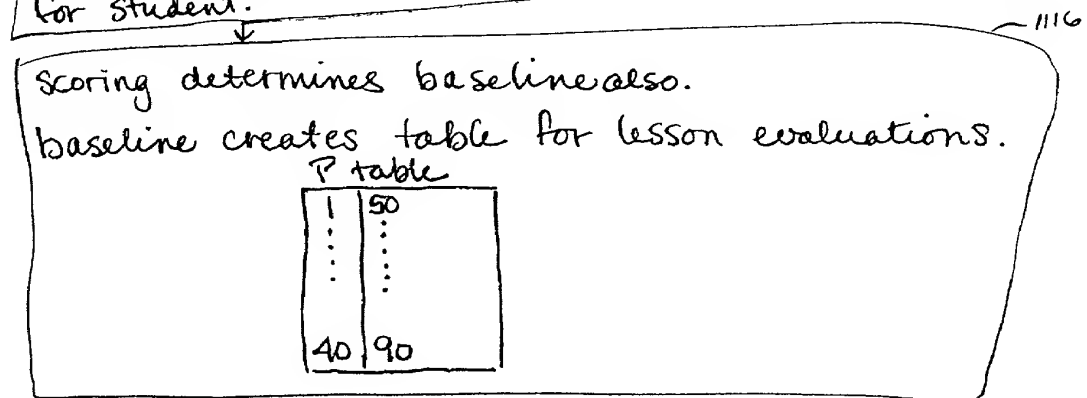 for student.
1116
scoring determines baseline also.
baseline creates table for lesson evaluations.
P table
1 50
40 90